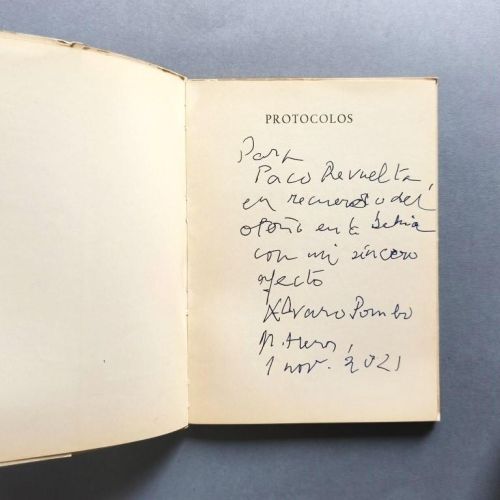 PROTOCOLOS
Para
Paco Revuelta,
en recuerdo del
otoño en la bahía
con mi sincero
afecto
Alvaro Pombo
1 nov. 2021